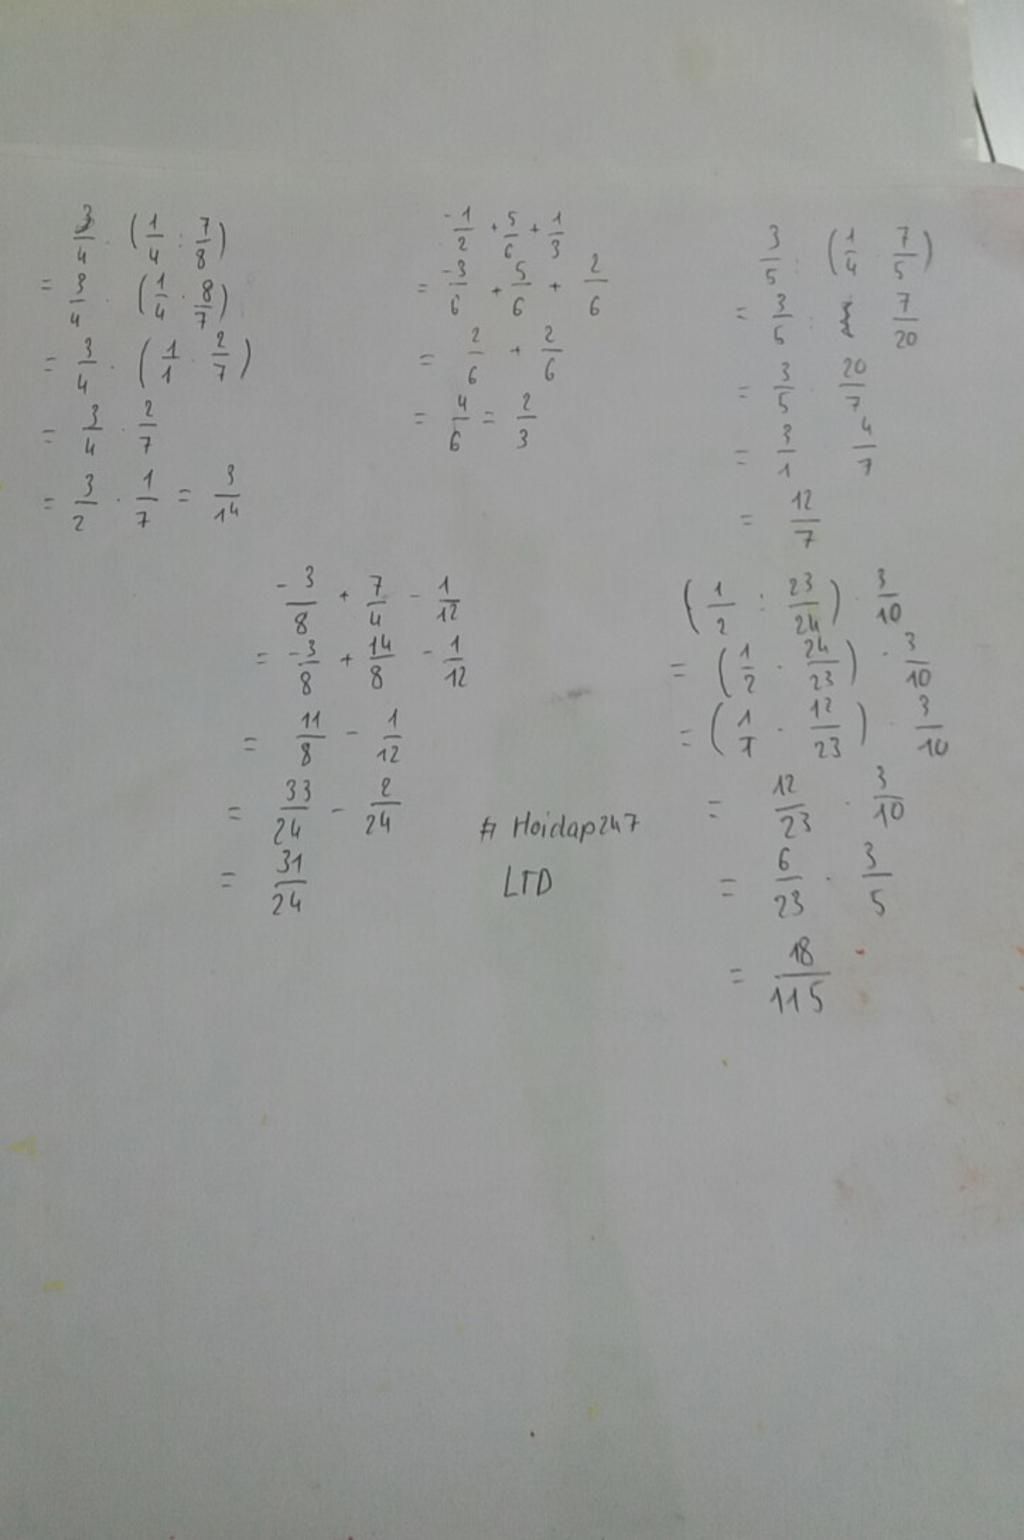 3/4 · (1/4 : 7/8)
= 3/4 · (1/4 · 8/7)
= 3/4 · (1/1 · 2/7)
= 3/4 · 2/7
= 3/2 · 1/7 = 3/14
-1/2 + 5/6 + 1/3
= -3/6 + 5/6 + 2/6
= 2/6 + 2/6
= 4/6 = 2/3
3/5 : (1/4 · 7/5)
= 3/5 : 7/20
= 3/5 · 20/7
= 3/1 · 4/7
= 12/7
-3/8 + 7/4 - 1/12
= -3/8 + 14/8 - 1/12
= 11/8 - 1/12
= 33/24 - 2/24
= 31/24
# Hoidap247
LTD
(1/2 : 23/24) · 3/10
= (1/2 · 24/23) · 3/10
= (1/1 · 12/23) · 3/10
= 12/23 · 3/10
= 6/23 · 3/5
= 18/115